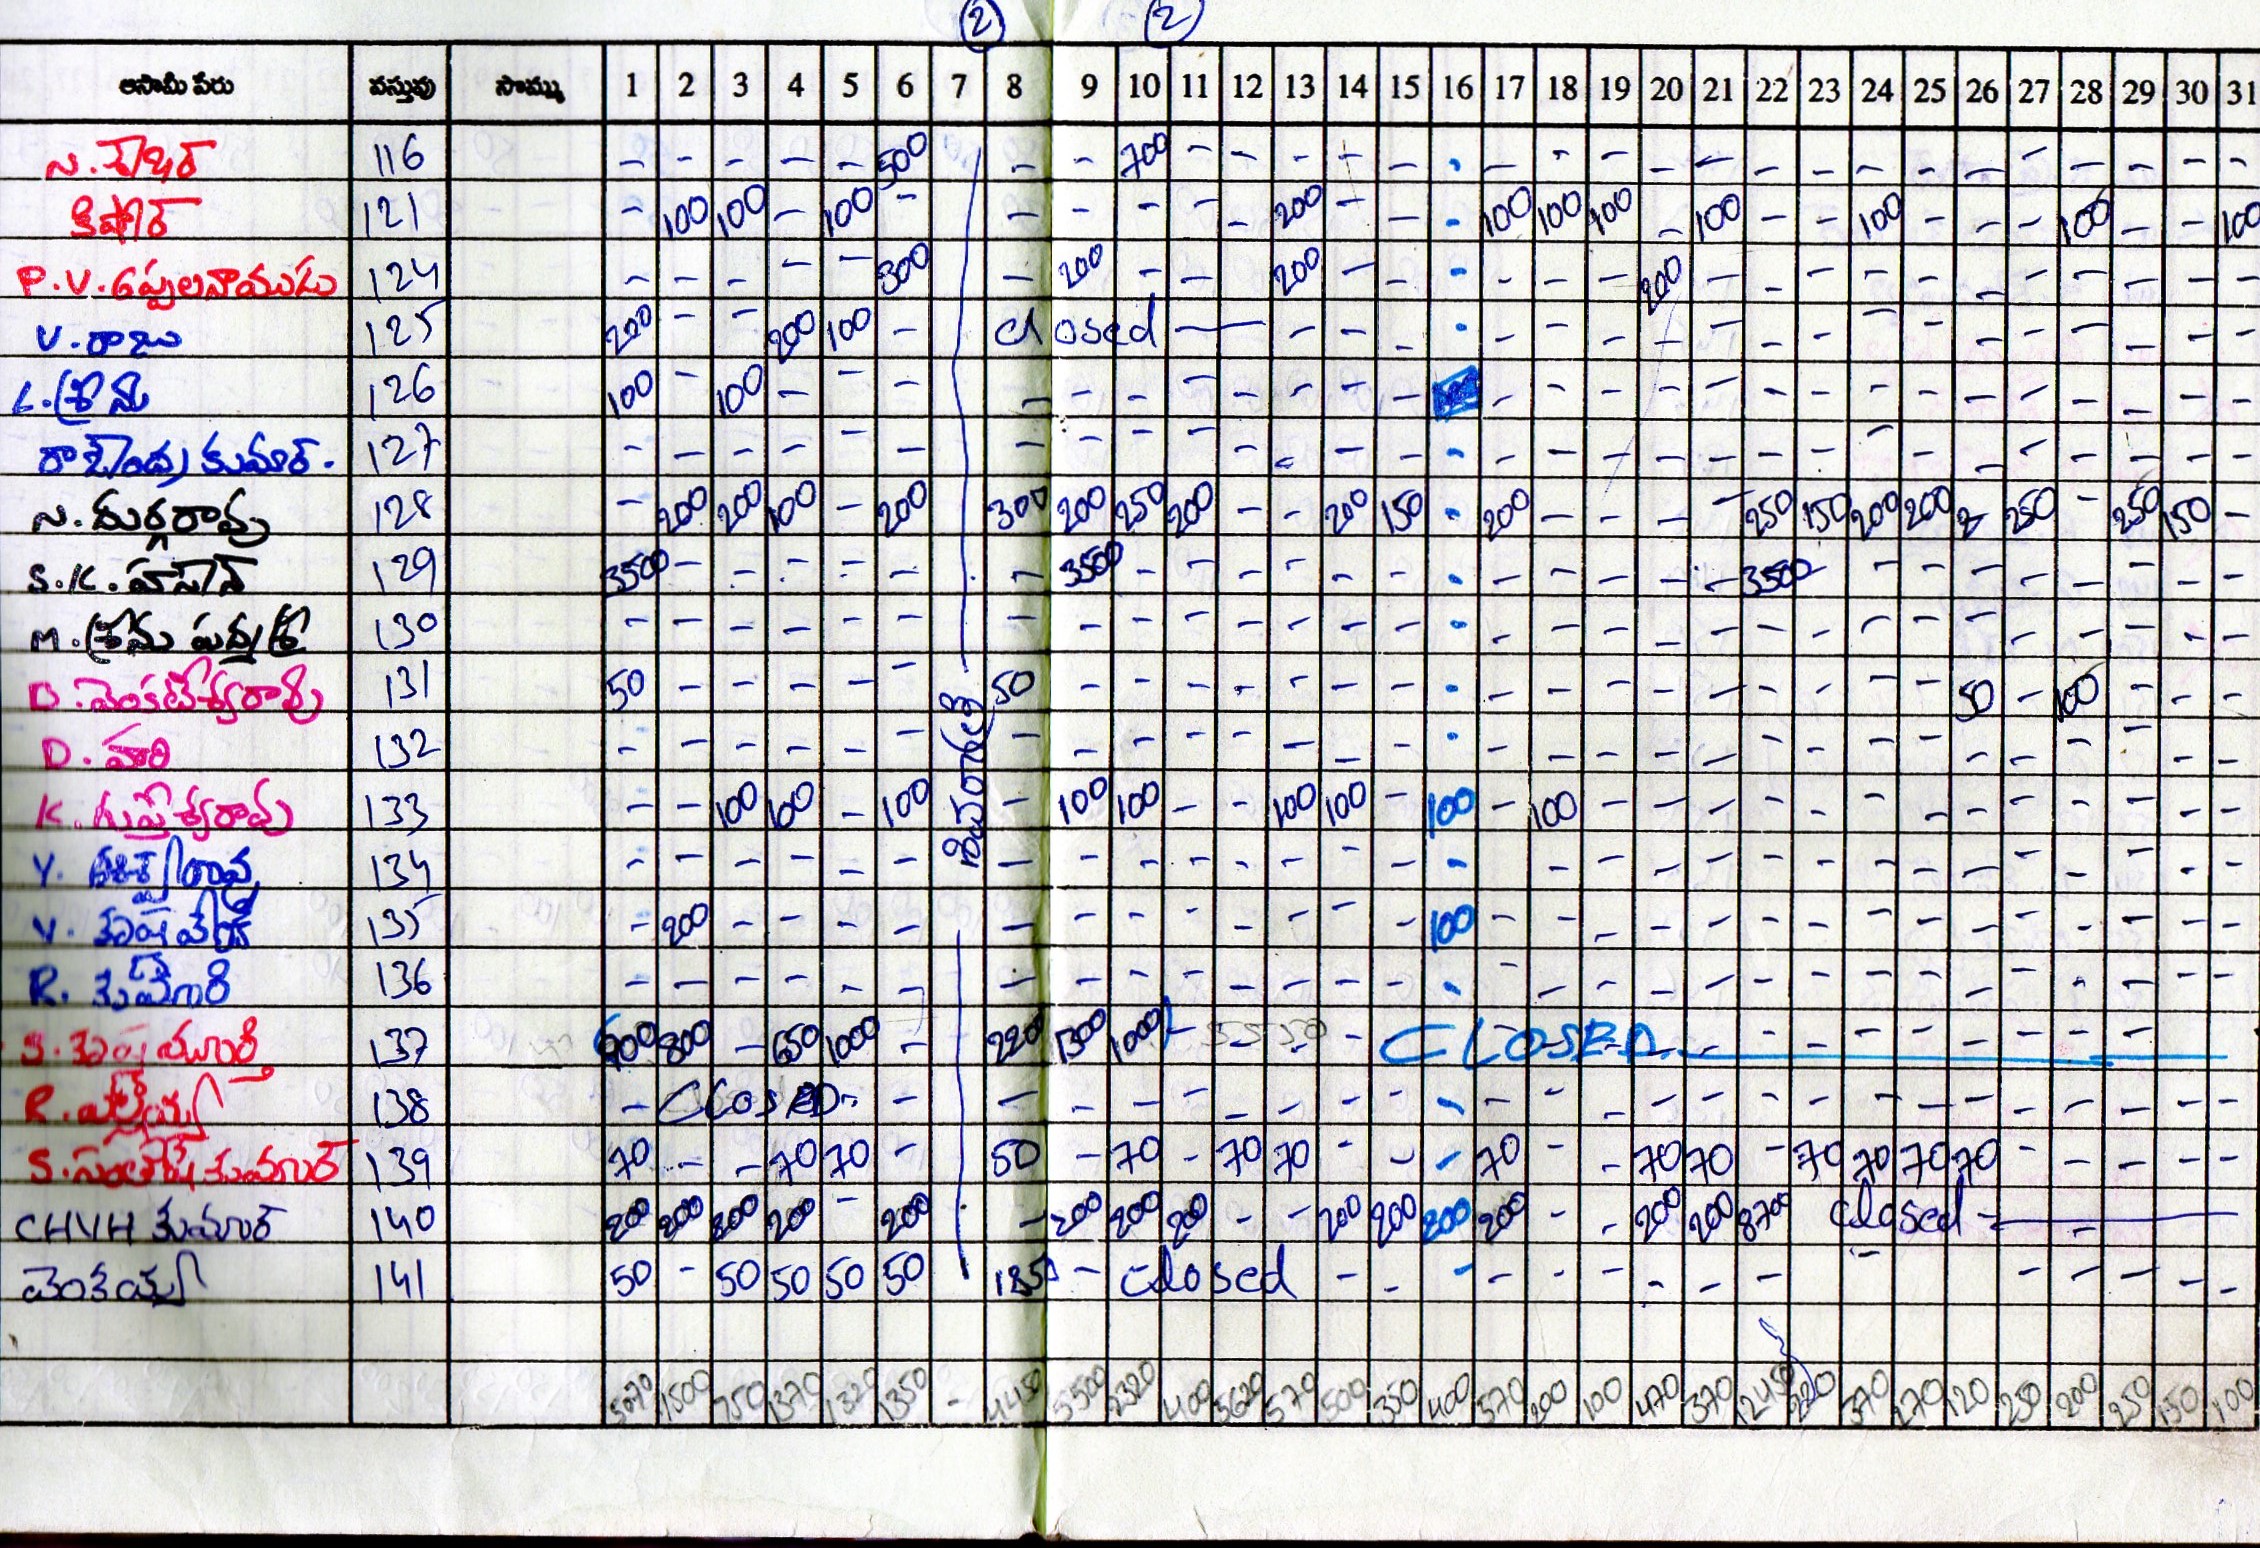 2 2
ఆసామీ పేరు వస్తువు సొమ్ము 1 2 3 4 5 6 7 8 9 10 11 12 13 14 15 16 17 18 19 20 21 22 23 24 25 26 27 28 29 30 31
116 - - - - - 500 - - 700 - - - - - - - - - - - - - - - - - - - - -
కిషోర్ 121 - 100 100 - 100 - - - - - - 200 - - - 100 100 100 - 100 - - 100 - - - 100 - - 100
P.V. అప్పలనాయుడు 124 - - - - - 300 - 200 - - - 200 - - - - - - 200 - - - - - - - - - - -
V. రాజు 125 200 - - 200 100 - closed - - - - - - - - - - - - - - - - - - - -
L. శ్రీను 126 100 - 100 - - - - - - - - - - - - - - - - - - - - - - - - - -
రాజేంద్ర కుమార్. 127 - - - - - - - - - - - - - - - - - - - - - - - - - - - - - -
N. దుర్గారావు 128 - 200 200 100 - 200 300 200 250 200 - - 200 150 - 200 - - - - 250 150 200 200 2 250 - 250 150 -
S.K. హసన్ 129 3500 - - - - - - 3500 - - - - - - - - - - - - 3500 - - - - - - - - -
M. శ్రీను పద్మశ్రీ 130 - - - - - - - - - - - - - - - - - - - - - - - - - - - - - -
D. వెంకటేశ్వరావు 131 50 - - - - - 50 - - - - - - - - - - - - - - - - - 50 - 100 - - -
D. హరి 132 - - - - - - - - - - - - - - - - - - - - - - - - - - - - - -
శివరాత్రి
K. గుప్తేశ్వరావు 133 - - 100 100 - 100 - 100 100 - - 100 100 - 100 - 100 - - - - - - - - - - - - -
Y. 134 - - - - - - - - - - - - - - - - - - - - - - - - - - - - - -
V. 135 - 200 - - - - - - - - - - - - 100 - - - - - - - - - - - - - - -
R. కుమారి 136 - - - - - - - - - - - - - - - - - - - - - - - - - - - - - -
S. కృష్ణమూర్తి 137 900 800 - 650 1000 - 220 1300 1000 - 5550 - CLOSED
R. 138 - CLOSED - - - - - - - - - - - - - - - - - - - - - - - - -
S. సంతోష్ కుమార్ 139 70 - - 70 70 - 50 - 70 - 70 70 - - - 70 - - 70 70 - 70 70 70 70 - - - - -
CHVH కుమార్ 140 200 200 200 200 - 200 - 200 200 200 - - 200 200 200 200 - - 200 200 8700 closed -
వెంకయ్య 141 50 - 50 50 50 50 1850 - closed - - - - - - - - - - - - - -
5070 1500 750 1370 1320 1350 - 4450 5500 2320 400 5620 570 500 350 400 570 200 100 470 370 12450 220 370 270 120 250 200 250 150 100